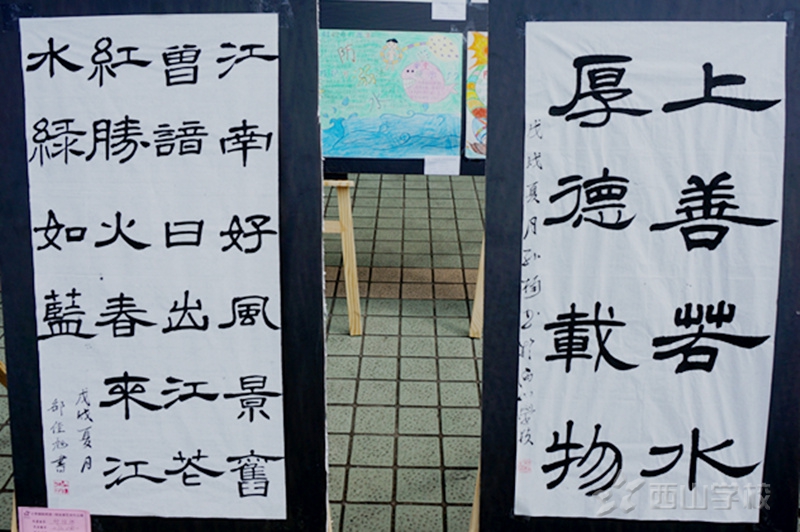 江南好風景舊
曾諳日出江花
紅勝火春來江
水綠如藍
戊戌夏月
書
上善若水
厚德載物
戊戌夏月書於西山學校
西山学校